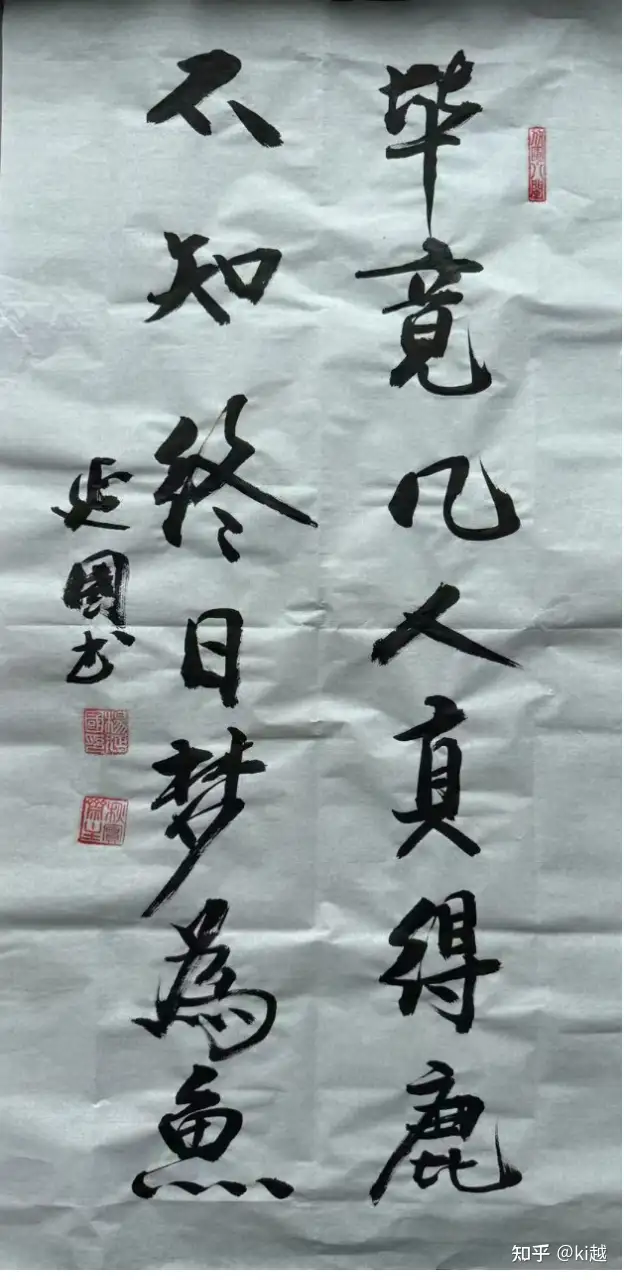 毕竟凡人真得鹿
不知终日梦為魚
延國书
知乎 @ki越